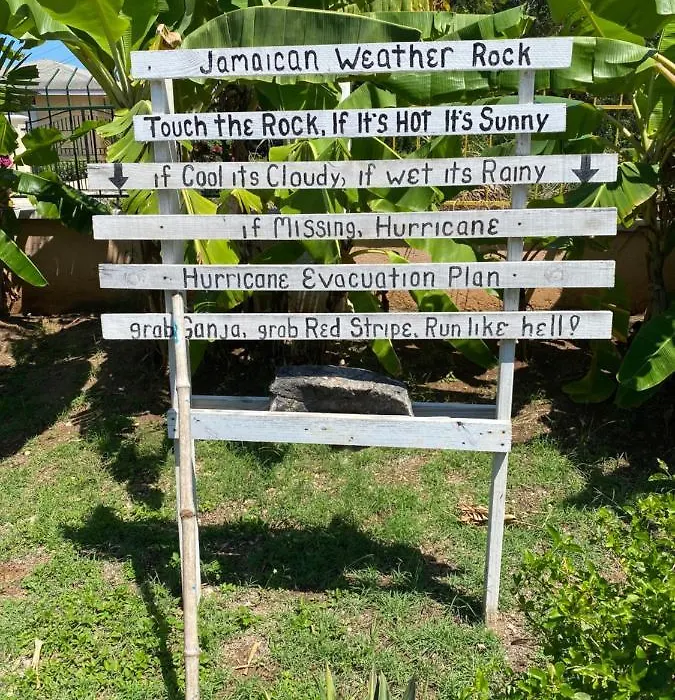 Jamaican Weather Rock
Touch the Rock, If It's Hot It's Sunny
if Cool its Cloudy, if wet its Rainy
if Missing, Hurricane
Hurricane Evacuation Plan
grab Ganja, grab Red Stripe. Run like hell!